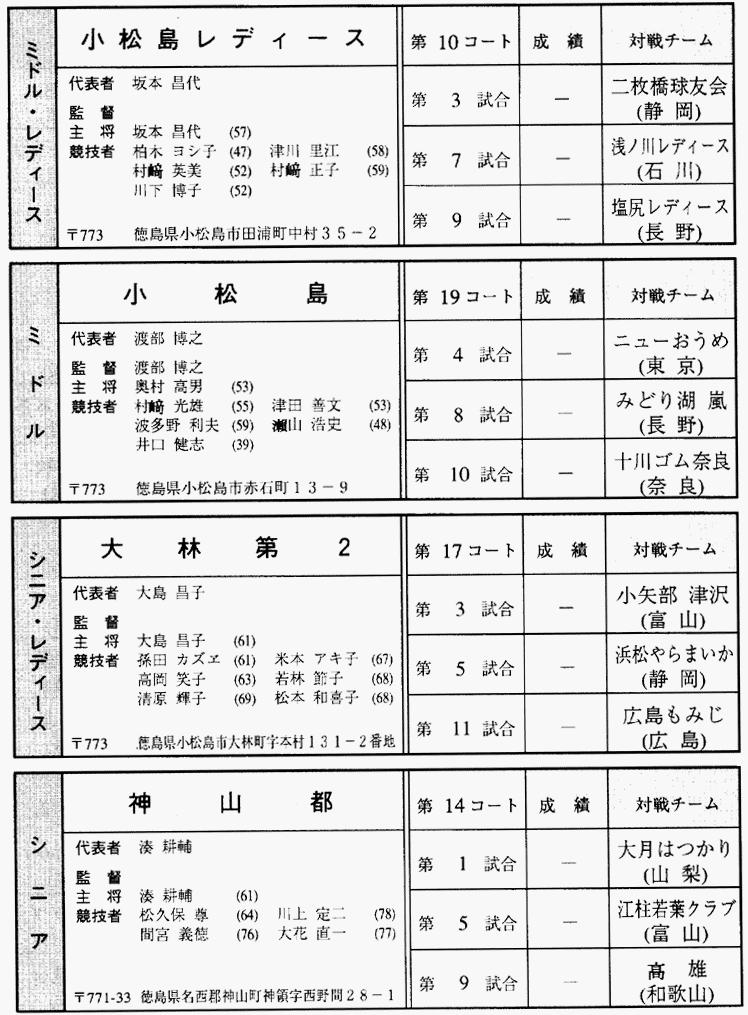 ミドル・レディース
小松島レディース
代表者 坂本 昌代
監 督
主 将 坂本 昌代 (57)
競技者 柏木 ヨシ子 (47) 津川 里江 (58)
村﨑 英美 (52) 村﨑 正子 (59)
川下 博子 (52)
〒773 徳島県小松島市田浦町中村35-2
第 10コート 成 績 対戦チーム
第 3 試合 — 二枚橋球友会
(静 岡)
第 7 試合 — 浅ノ川レディース
(石 川)
第 9 試合 — 塩尻レディース
(長 野)
ミドル
小 松 島
代表者 渡部 博之
監 督 渡部 博之
主 将 奥村 高男 (53)
競技者 村﨑 光雄 (55) 津田 善文 (53)
波多野 利夫 (59) 瀬山 浩史 (48)
井口 健志 (39)
〒773 徳島県小松島市赤石町13-9
第 19コート 成 績 対戦チーム
第 4 試合 — ニューおうめ
(東 京)
第 8 試合 — みどり湖 嵐
(長 野)
第 10 試合 — 十川ゴム奈良
(奈 良)
シニア・レディース
大 林 第 2
代表者 大島 昌子
監 督
主 将 大島 昌子 (61)
競技者 孫田 カズヱ (61) 米本 アキ子 (67)
高岡 笑子 (63) 若林 節子 (68)
清原 輝子 (69) 松本 和喜子 (68)
〒773 徳島県小松島市大林町字本村131-2番地
第 17コート 成 績 対戦チーム
第 3 試合 — 小矢部 津沢
(富 山)
第 5 試合 — 浜松やらまいか
(静 岡)
第 11 試合 — 広島もみじ
(広 島)
シニア
神 山 都
代表者 湊 耕輔
監 督
主 将 湊 耕輔 (61)
競技者 松久保 尊 (64) 川上 定二 (78)
間宮 義徳 (76) 大花 直一 (77)
〒771-33 徳島県名西郡神山町神領字西野間28-1
第 14コート 成 績 対戦チーム
第 1 試合 — 大月はつかり
(山 梨)
第 5 試合 — 江柱若葉クラブ
(富 山)
第 9 試合 — 高 雄
(和歌山)